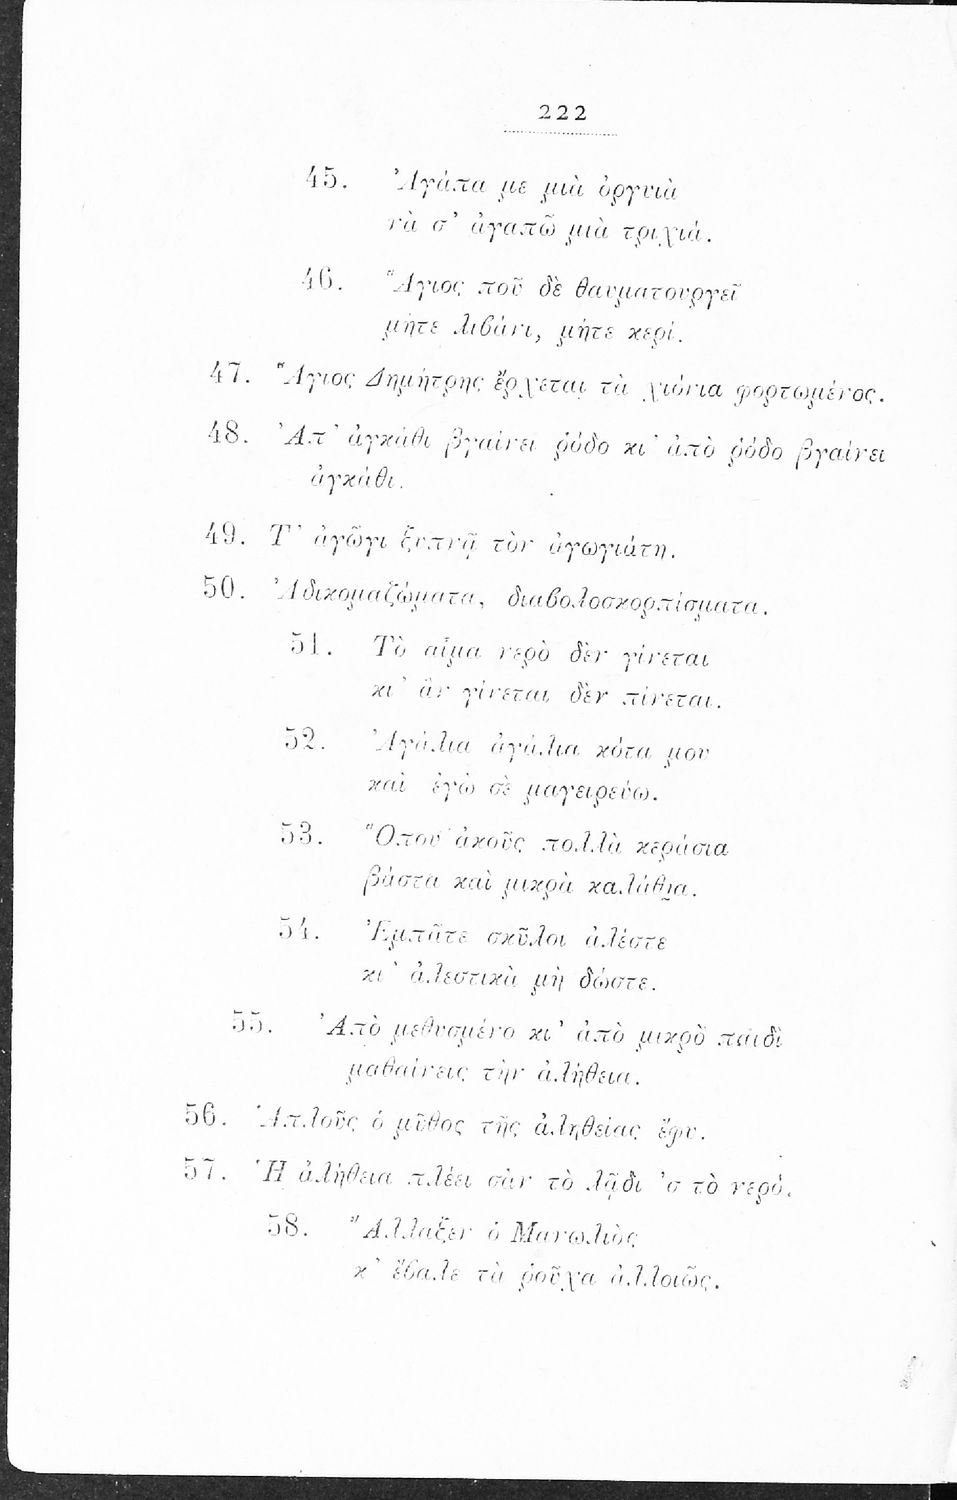 222
45. Ἀγάπα με μιὰ ὀργυιὰ
νὰ σ' ἀγαπῶ μιὰ τριχιά.
46. Ἅγιος ποῦ δὲ θαυματουργεῖ
μήτε λιβάνι, μήτε κερί.
47. Ἅγιος Δημήτρης ἔρχεται τὰ χιόνια φορτωμένος.
48. Ἀπ' ἀγκάθι βγαίνει ῥόδο κι' ἀπὸ ῥόδο βγαίνει
ἀγκάθι.
49. Τ' ἀγῶγι ξυπνᾷ τὸν ἀγωγιάτη.
50. Ἀδικομαζώματα, διαβολοσκορπίσματα.
51. Τὸ αἷμα νερὸ δὲν γίνεται
κι' ἂν γίνεται δὲν πίνεται.
52. Ἀγάλια ἀγάλια κότα μου
καὶ ἐγὼ σὲ μαγειρεύω.
53. Ὅπου ἀκοῦς πολλὰ κεράσια
βάστα καὶ μικρὰ καλάθια.
54. Ἐμπᾶτε σκῦλοι ἀλέστε
κι' ἀλεστικὰ μὴ δώστε.
55. Ἀπὸ μεθυσμένο κι' ἀπὸ μικρὸ παιδὶ
μαθαίνεις τὴν ἀλήθεια.
56. Ἁπλοῦς ὁ μῦθος τῆς ἀληθείας ἔφυ.
57. Ἡ ἀλήθεια πλέει σὰν τὸ λᾷδι 'σ τὸ νερό.
58. Ἄλλαξεν ὁ Μανωλιὸς
κ' ἔβαλε τὰ ῥοῦχα ἀλλοιῶς.